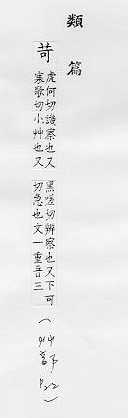 類篇
苛
虎何切譴察也又
寒歌切小艸也又
黑嗟切辨察也又下可
切急也文一重音三
(艸部 P.22)